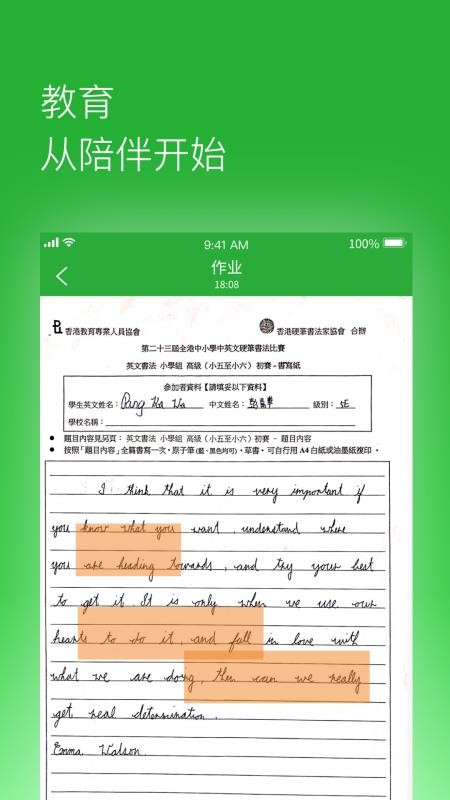 教育
从陪伴开始
9:41 AM 100%
作业
18:08
香港教育專業人員協會 香港硬筆書法家協會 合辦
第二十三屆全港中小學中英文硬筆書法比賽
英文書法 小學組 高級（小五至小六）初賽 - 書寫紙
參加者資料【請填妥以下資料】
學生英文姓名： Pang Ka Wa 中文姓名： 級別： 5E
學校名稱：
● 題目內容見另頁： 英文書法 小學組 高級（小五至小六）初賽 - 題目內容
● 按照「題目內容」全篇書寫一次，原子筆（藍、黑色均可），草書，可自行用 A4 白紙或油墨紙複印。
I think that it is very important if
you know what you want, understand where
you are heading towards, and try your best
to get it. It is only when we use our
hearts to do it, and fall in love with
what we are doing, then can we really
get real determination.
Emma Watson.